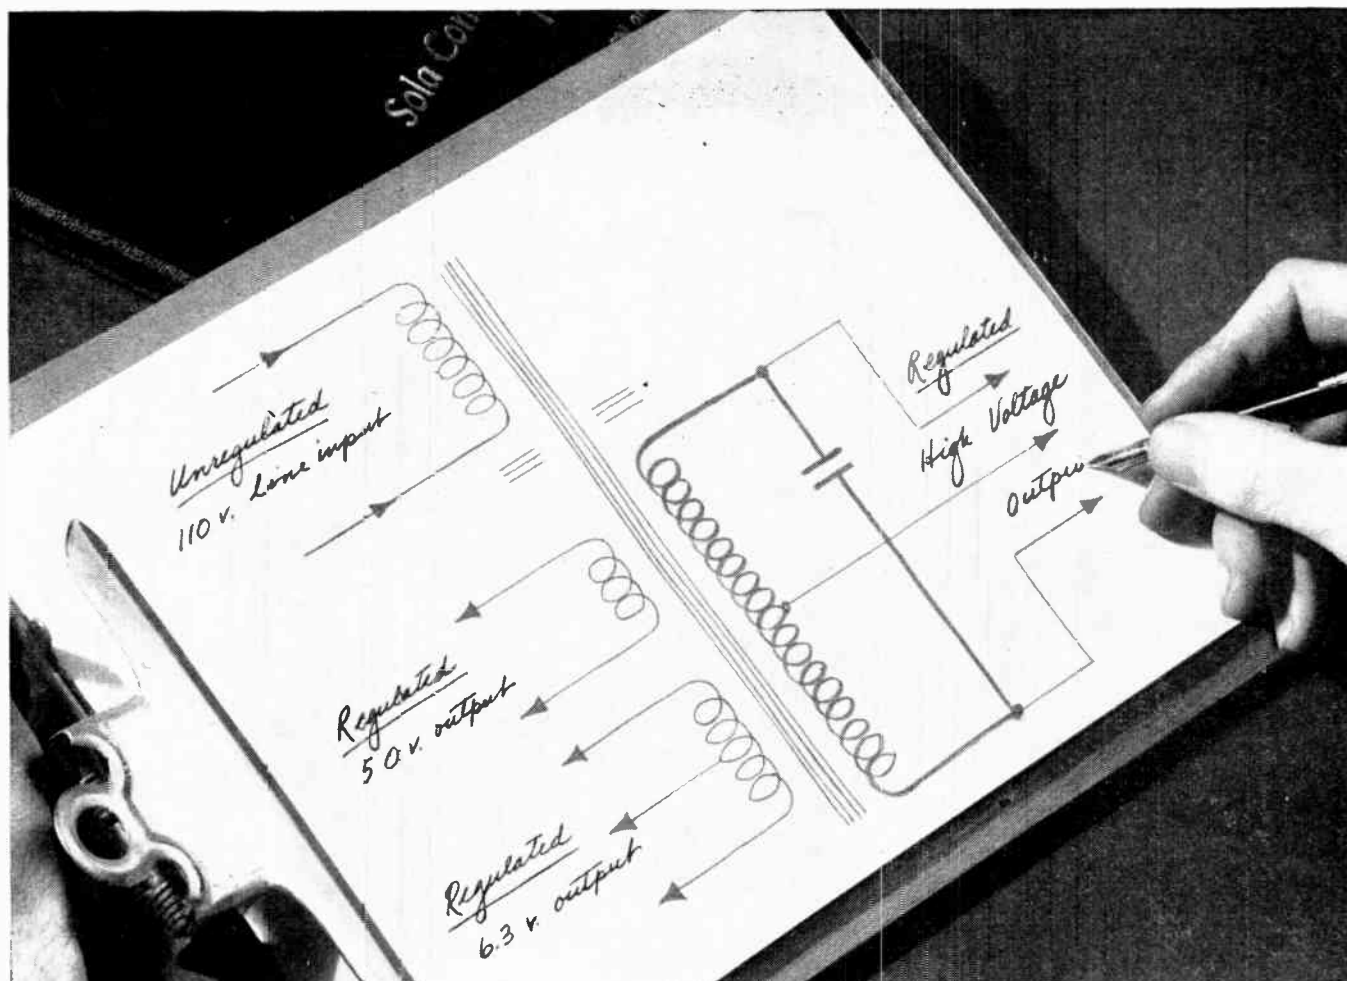 Sola Con
Unregulated
110 v. Line input
Regulated
5.0 v. output
Regulated
6.3 v. output
Regulated
High Voltage
Outpu